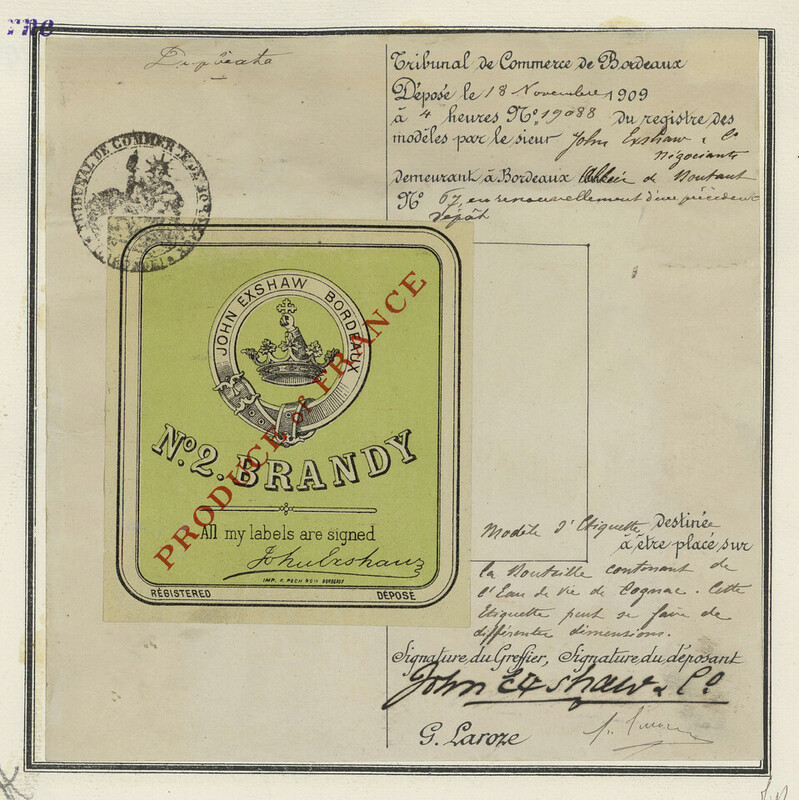 Duplicata
Tribunal de Commerce de Bordeaux
Déposé le 18 Novembre 1909
à 4 heures Nº 19088 du registre des
modèles par le sieur John Exshaw & Cº
Négociants
demeurant à Bordeaux de Boutaut
Nº 67, en renouvellement d'un précédent
dépôt
TRIBUNAL DE COMMERCE DE BORDEAUX
JOHN EXSHAW BORDEAUX
PRODUCE of FRANCE
Nº 2. BRANDY
All my labels are signed
John Exshaw
IMP. BORDEAUX
REGISTERED DÉPOSÉ
Modèle d'Etiquette destinée
à être placé sur
la Bouteille contenant de
l'Eau de vie de Cognac. Cette
Etiquette peut se faire de
différentes dimensions.
Signature du Greffier, Signature du déposant
John Exshaw & Cº
G. Laroze